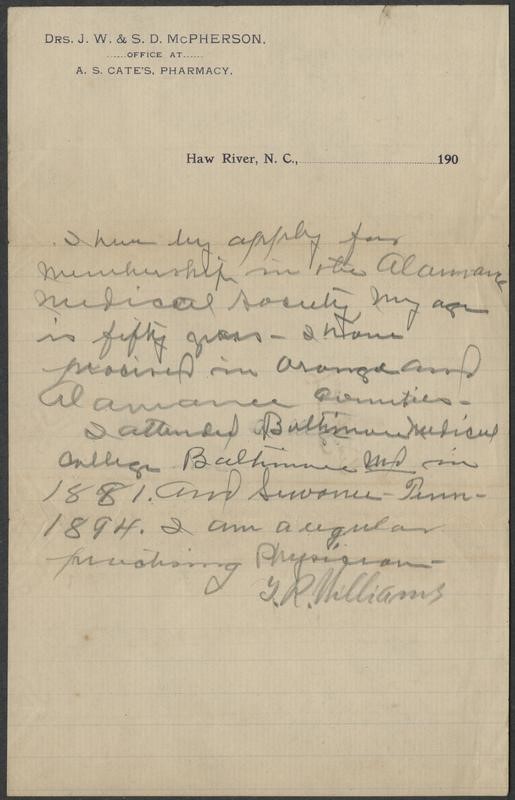 DRS. J. W. & S. D. MCPHERSON.
......OFFICE AT......
A. S. CATE'S, PHARMACY.
Haw River, N. C., 190
I here by apply for
membership in the Alamance
Medical Society, My age
is fifty years - I have
in Orange and
Alamance Counties -
I attended Baltimore Medical
College Baltimore Md in
1881. and Sewanee - Tenn -
1894. I am a regular
practising Physician -
R. Williams